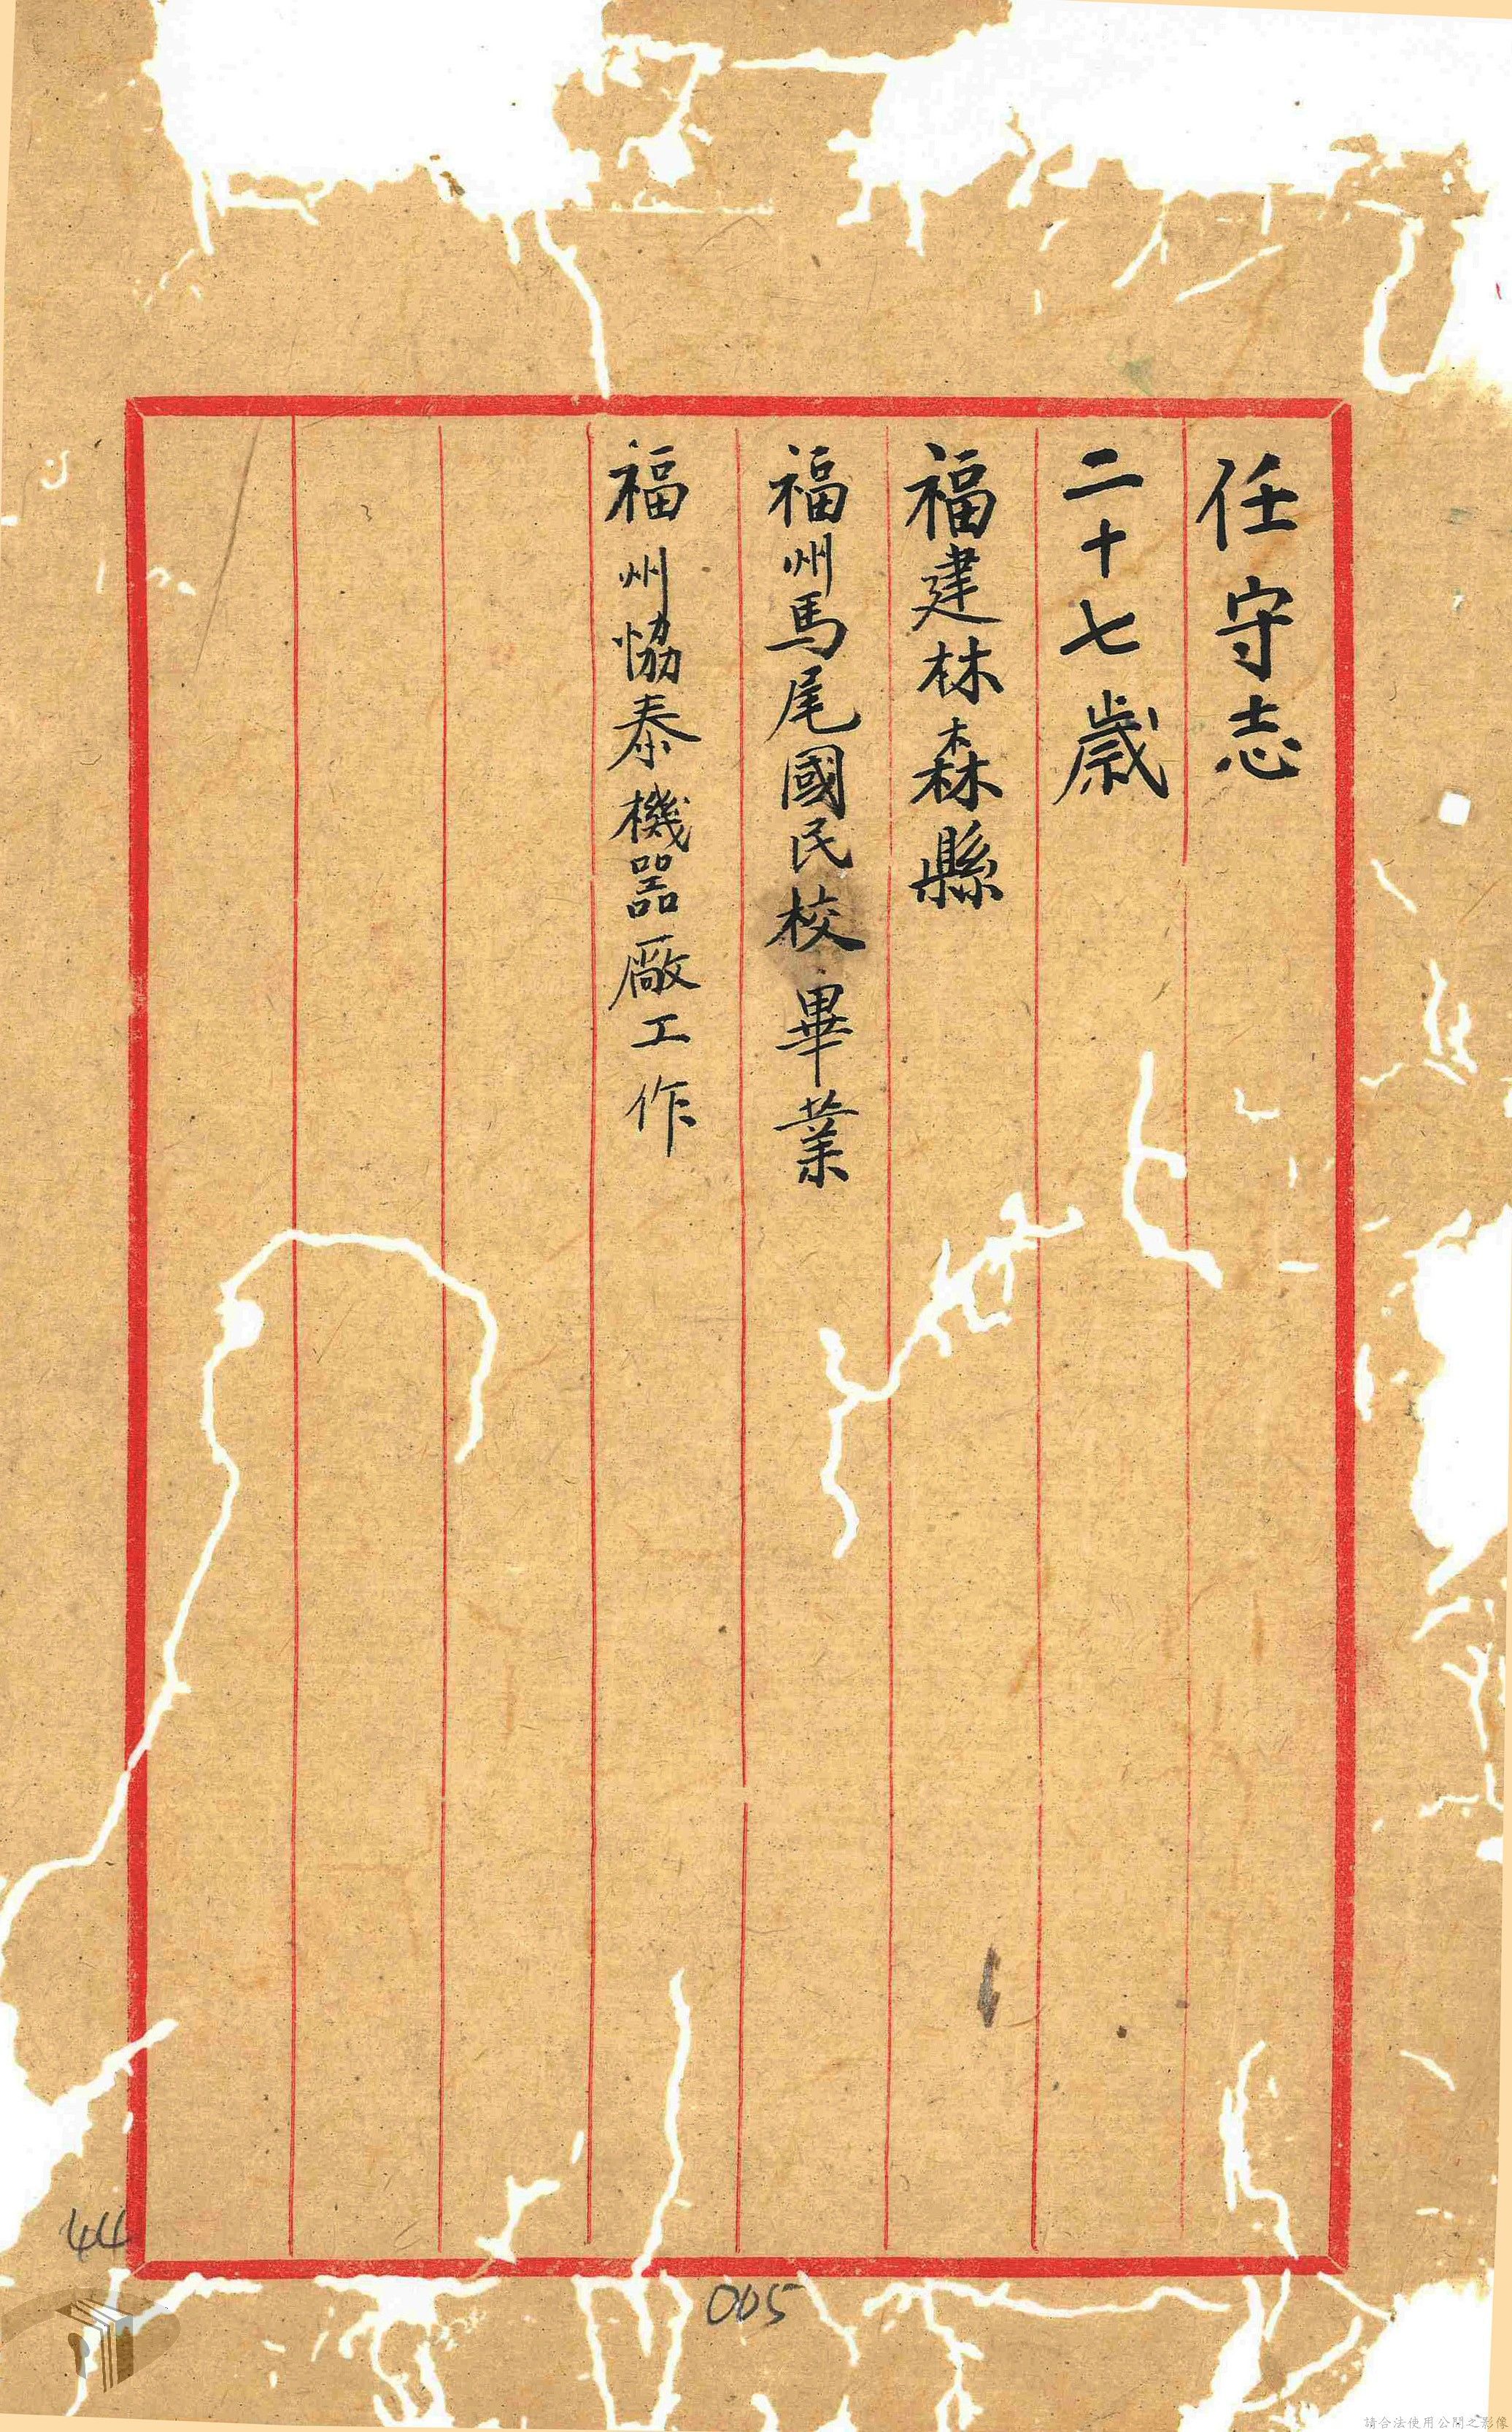 任守志
二十七歲
福建林森縣
福州馬尾國民校畢業
福州恊泰機器廠工作
44
005
請合法使用公開之影像